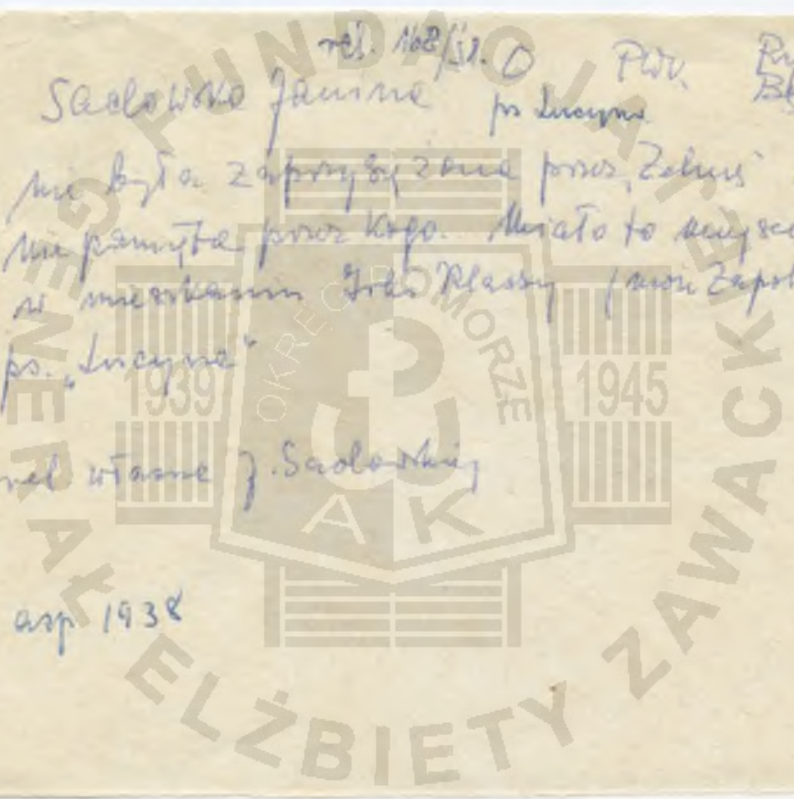 Sadowska Janina ps Lucyna
nie była zaprzysiężona przez "Zelmę"
nie pamięta przez kogo. Miało to miejsce
w mieszkaniu Klassy
ps. „Lucyna"
rel własne J. Sadowskiej
asp 1938
FUNDACJA GENERAŁ ELŻBIETY ZAWACKIEJ
OKRĘG POMORZE
1939 1945
AK